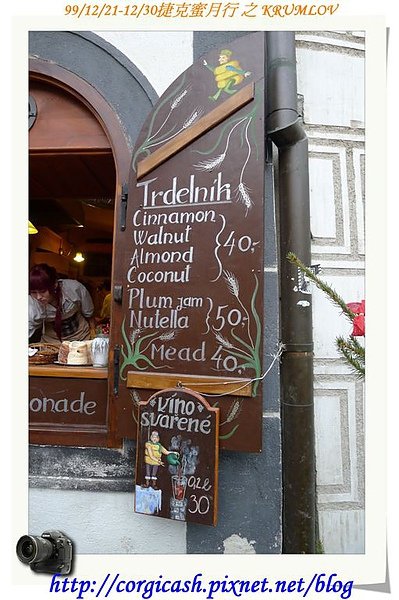 99/12/21-12/30捷克蜜月行 之 KRUMLOV
Trdelník
Cinnamon
Walnut
Almond
Coconut
40,-
Plum jam
Nutella
50,-
Mead 40,-
onade
víno
svařené
0,2ℓ
30
http://corgicash.pixnet.net/blog